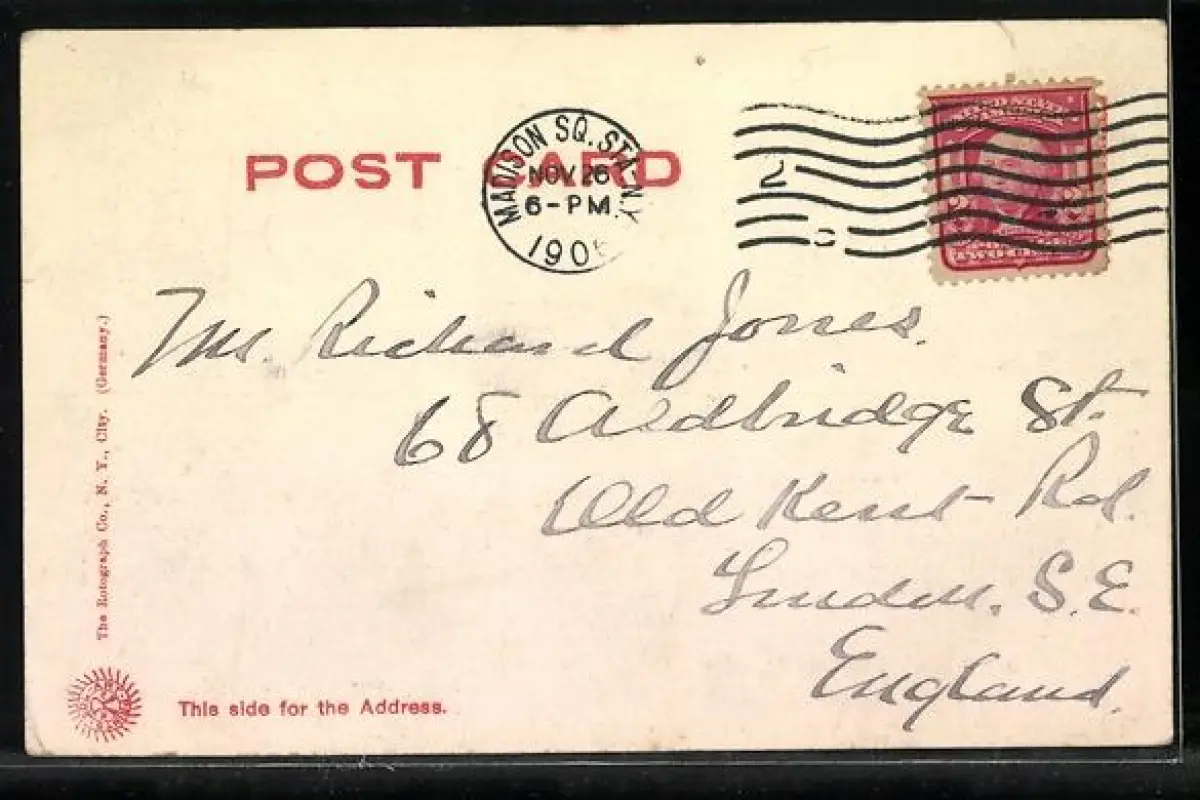 POST CARD
MADISON SQ. STA. N.Y.
NOV 26
6-PM
190
2
Mr. Richard Jones.
68 Aldbridge St.
Old Kent Rd.
London. S.E.
England.
The Rotograph Co., N. Y., City. (Germany.)
This side for the Address.